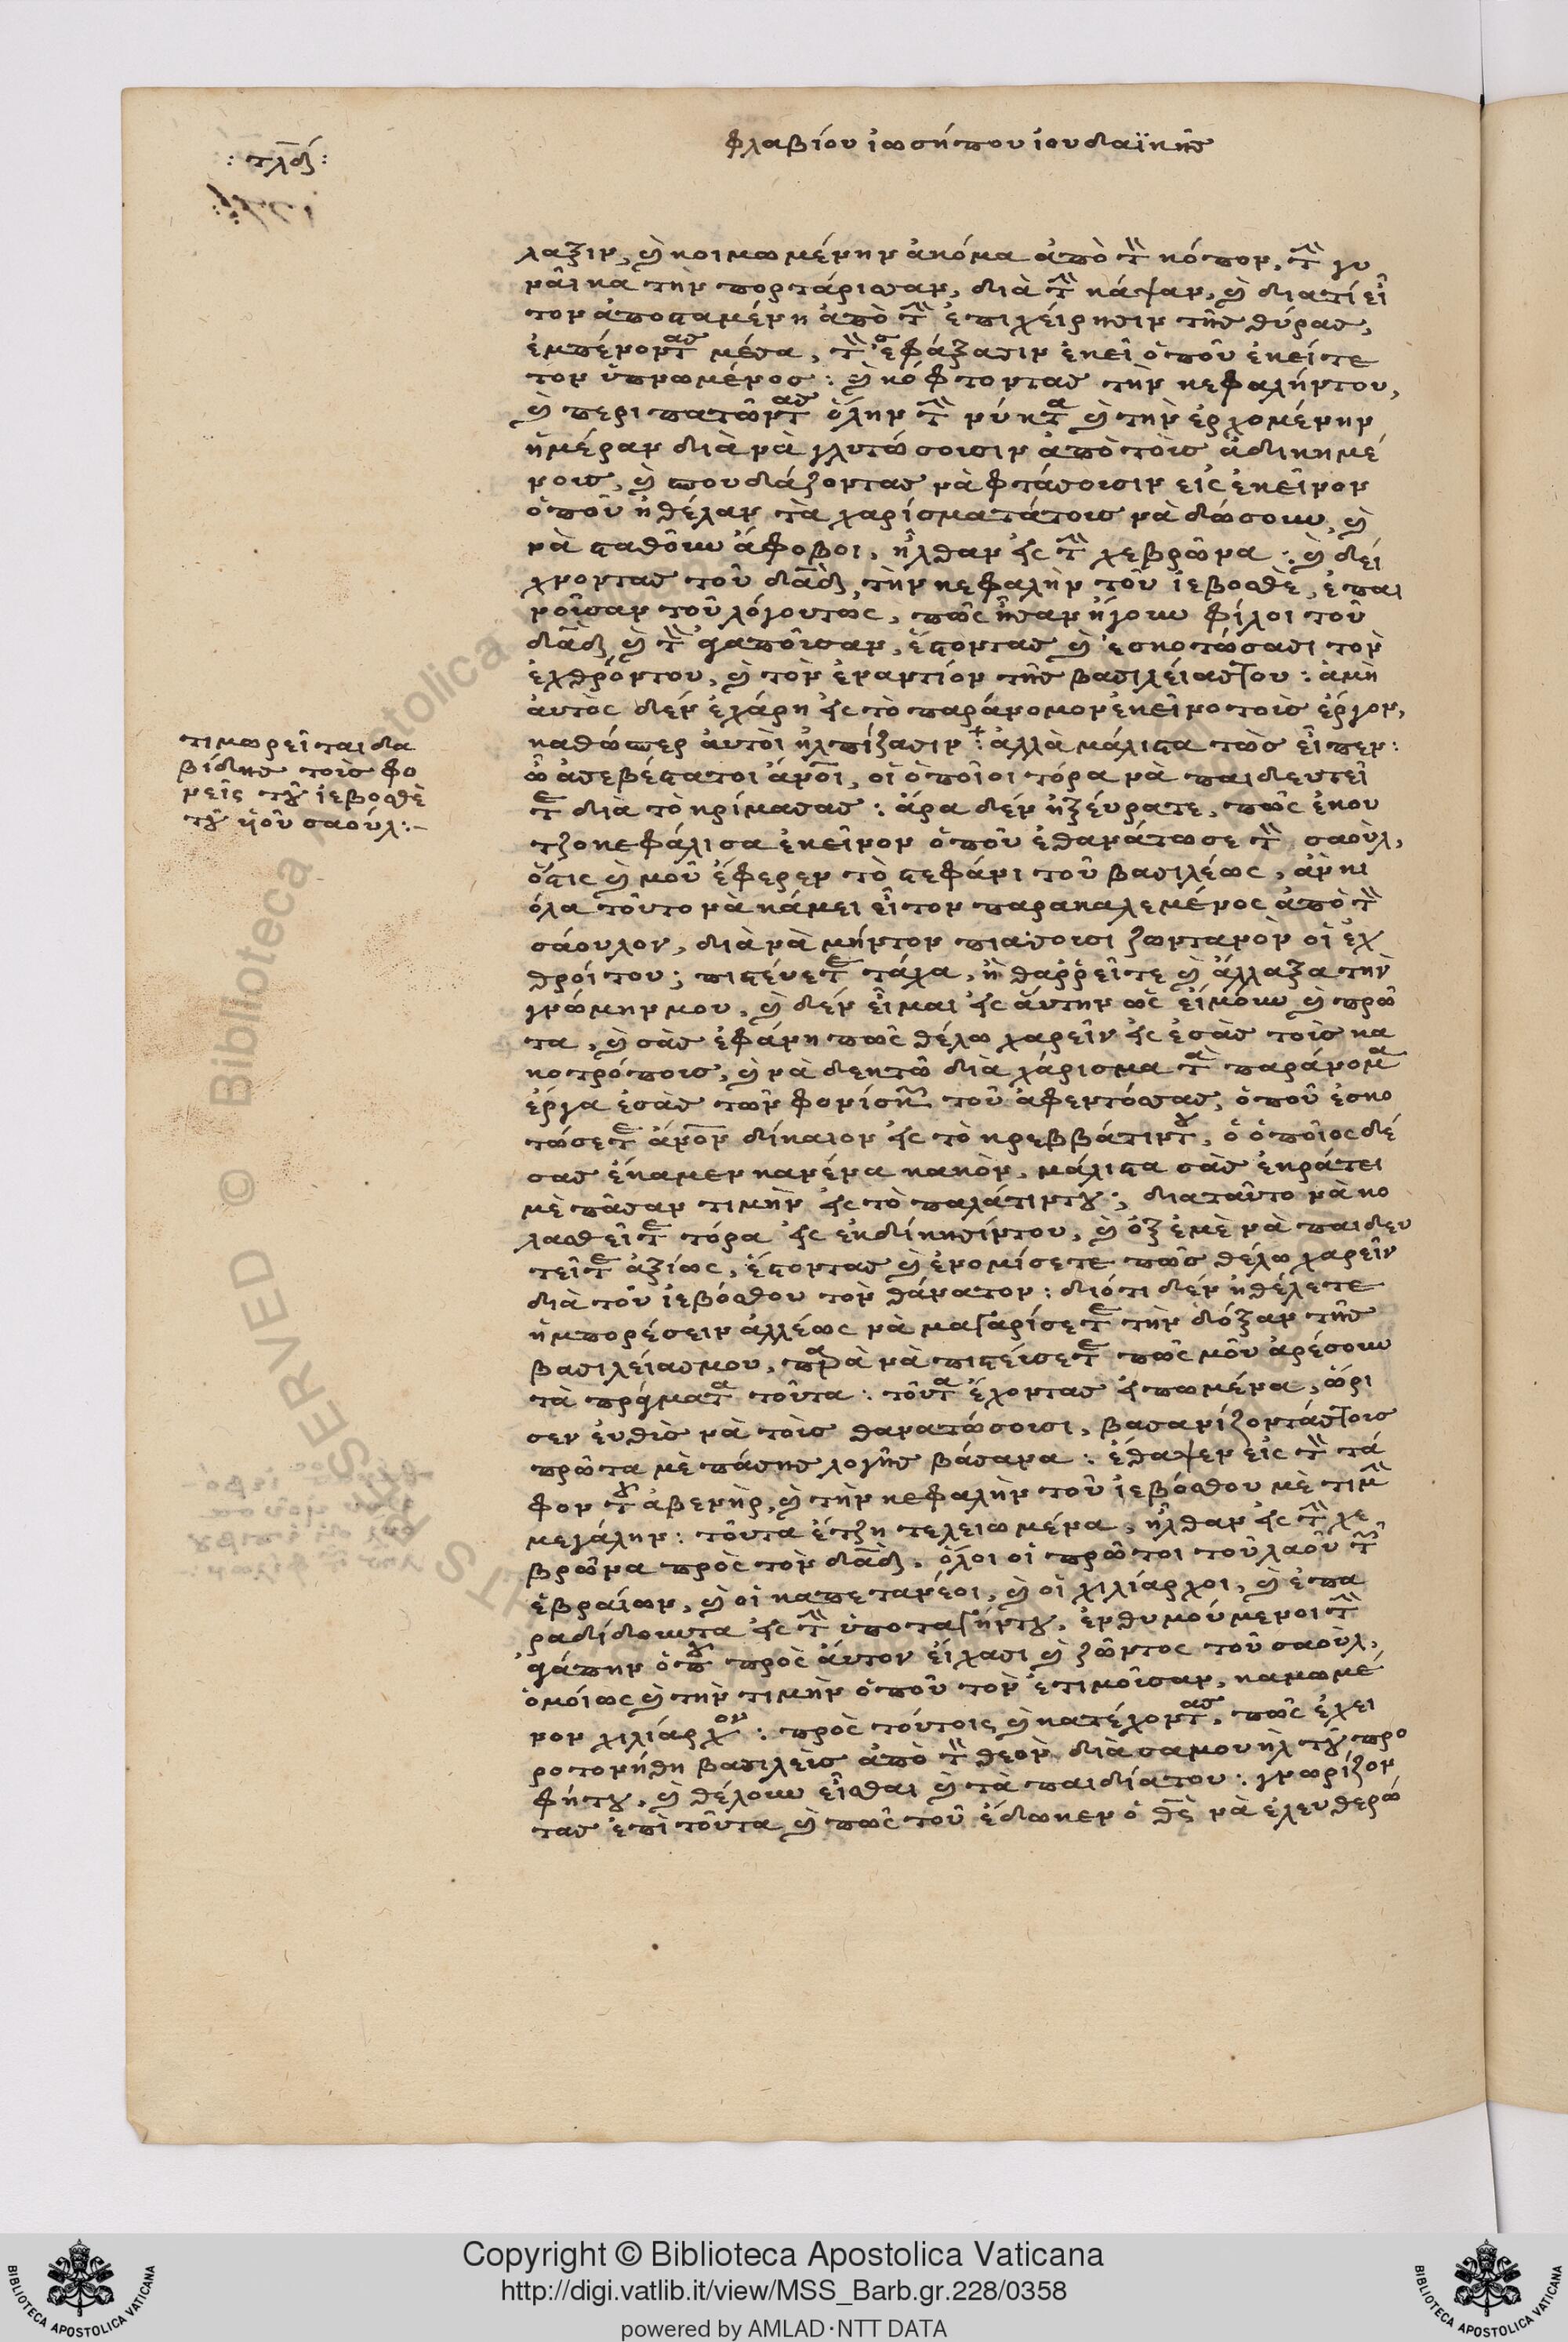 φλαβίου ἰωσήπου ἰουδαϊκῆς
λαξιν, καὶ κοιμωμένην ἀκόμα ἀπὸ τὸν κόπον, τὴν γυ
ναῖκα τὴν πορτάρισσαν, διὰ τὴν κάψαν, καὶ διατί εἶ
τον ἀποσταμένη ἀπὸ τὴν ἐπιχείρησιν τῆς θύρας,
ἐμπένοντας μέσα, τὸν ἐσφάξασιν ἐκεῖ ὁποῦ ἐκείτε
τον ὑπνωμένος : καὶ κόφτοντας τὴν κεφαλήντου,
καὶ περιπατῶντας ὅλην τὴν νύκτα καὶ τὴν ἐρχομένην
ἡμέραν διὰ νὰ γλυτώσουσιν ἀπὸ τοὺς ἀδικημέ
νους, καὶ σπουδάζοντας νὰ φτάσουσιν εἰς ἐκεῖνον
ὁποῦ ἠθέλαν τὰ χαρίσματάτους νὰ δώσουν, καὶ
νὰ σταθοῦν ἄφοβοι, ἦλθαν εἰς τὴν χεβρῶνα : καὶ δεί
χνοντας τοῦ δαδ τὴν κεφαλὴν τοῦ ἰεβοσθὲ, ἐπαι
νοῦσαν τοῦ λόγουτως, πῶς ἦσαν ἤγουν φίλοι τοῦ
δαδ καὶ τὸν ἀγαποῦσαν, ἔστοντας καὶ ἐσκοτώσασι τὸν
ἐχθρόντου, καὶ τὸν ἐναντίον τῆς βασιλείαςτου : ἀμὴ
ἀυτὸς δὲν ἐχάρη εἰς τὸ παράνομον ἐκεῖνο τοὺς ἔργον,
καθώσπερ ἀυτοὶ ἠλπίζασιν : ἀλλὰ μάλιστα τὼς εἶπεν :
ὦ ἀσεβέστατοι ἄνοι, οἱ ὁποῖοι τόρα νὰ παιδευτεῖ
τε διὰ τὸ κρίμασας : ἄρα δὲν ἠξέυρατε, πῶς ἐκου
τζοκεφάλισα ἐκεῖνον ὁποῦ ἐθανάτωσε τὸν σαοὺλ,
ὅστις καὶ μοῦ ἔφερεν τὸ στεφάνι τοῦ βασιλέως, ἂν κι
όλα τοῦτο νὰ κάμει εἶτον παρακαλεμένος ἀπὸ τὸν
σάουλον, διὰ νὰ μήντον πιάσουσι ζωντανὸν οἱ ἐχ
θροί του; πιστέυετε τάχα, ἢ θαῤῥεῖτε καὶ ἄλλαξα τὴν
γνώμην μου, καὶ δὲν εἶμαι εἰς ἄυτην ὡς εἴμουν καὶ πρῶ
τα, καὶ σὰς ἐφάνη πῶς θέλω χαρεῖν εἰς ἐσὰς τοὺς κα
κοτρόπους, καὶ νὰ δεκτῶ διὰ χάρισμα τὰ παράνομα
ἔργα ἐσὰς τῶν φονίσκων τοῦ ἀφεντόςσας, ὁποῦ ἐσκο
τώσετε ἄνον δίκαιον εἰς τὸ κρεββάτιντου, ὁ ὁποῖος δέ
σας ἔκαμεν κανένα κακὸν, μάλιστα σὰς ἐκράτει
μὲ πᾶσαν τιμὴν εἰς τὸ παλάτιντου; διαταῦτο νὰ κο
λασθεῖτε τόρα εἰς ἐκδίκησίντου, καὶ ὀξ ἐμὲ νὰ παιδευ
τεῖτε ἀξίως, ἔστοντας καὶ ἐνομίσετε πῶς θέλω χαρεῖν
διὰ τοῦ ἰεβόσθου τὸν θάνατον : διότι δὲν ἠθέλετε
ἠμπορέσειν ἀλλέως νὰ μαγαρίσετε τὴν δόξαν τῆς
βασιλείαςμου, παρὰ νὰ πιστεύσετε πῶς μοῦ ἀρέσουν
τὰ πράγματα τοῦτα : τοῦτα ἔχοντας εἰπωμένα, ὥρι
σεν ἐυθὺς νὰ τοὺς θανατώσουσι, βασανίζοντάςτους
πρῶτα μὲ πάσης λογῆς βάσανα : ἔθαψεν εἰς τὸν τά
φον τοῦ ἀβενὴρ, καὶ τὴν κεφαλὴν τοῦ ἰεβόσθου μὲ τιμὴν
μεγάλην : τοῦτα ἔτζη τελειωμένα, ἦλθαν εἰς τὴν χε
βρῶνα πρὸς τὸν δαδ, ὅλοι οἱ πρῶτοι τοῦ λαοῦ τῶν
ἑβραίων, καὶ οἱ καπετανέοι, καὶ οἱ χιλίαρχοι, καὶ ἐπα
ραδίδουντα εἰς τὴν ὑποταγήντου, ἐνθυμούμενοι τὴν
ἀγάπην ὁποῦ πρὸς ἄυτον εἴχασι καὶ ζῶντος τοῦ σαοὺλ,
ὁμοίως καὶ τὴν τιμὴν ὁποῦ τὸν ἐτιμοῦσαν, καμωμέ
νον χιλίαρχον : πρὸς τούτοις καὶ κατέχοντας, πῶς ἔχει
ροτονήθη βασιλεὺς ἀπὸ τὸν θεὸν διὰ σαμουὴλ τοῦ προ
φήτου, καὶ θέλουν εἶσθαι καὶ τὰ παιδίατου : γνωρίζον
τας ἐπὶ τοῦτα καὶ πῶς τοῦ ἔδωκεν ὁ θς νὰ ἐλευθερώ
: τλδ :
τιμωρεῖται δα
βίδης τοὺς φο
νεῖς τοῦ ἰεβοσθὲ
τοῦ ὑοῦ σαούλ :-
Copyright © Biblioteca Apostolica Vaticana
http://digi.vatlib.it/view/MSS_Barb.gr.228/0358
powered by AMLAD·NTT DATA
BIBLIOTECA APOSTOLICA VATICANA
BIBLIOTECA APOSTOLICA VATICANA